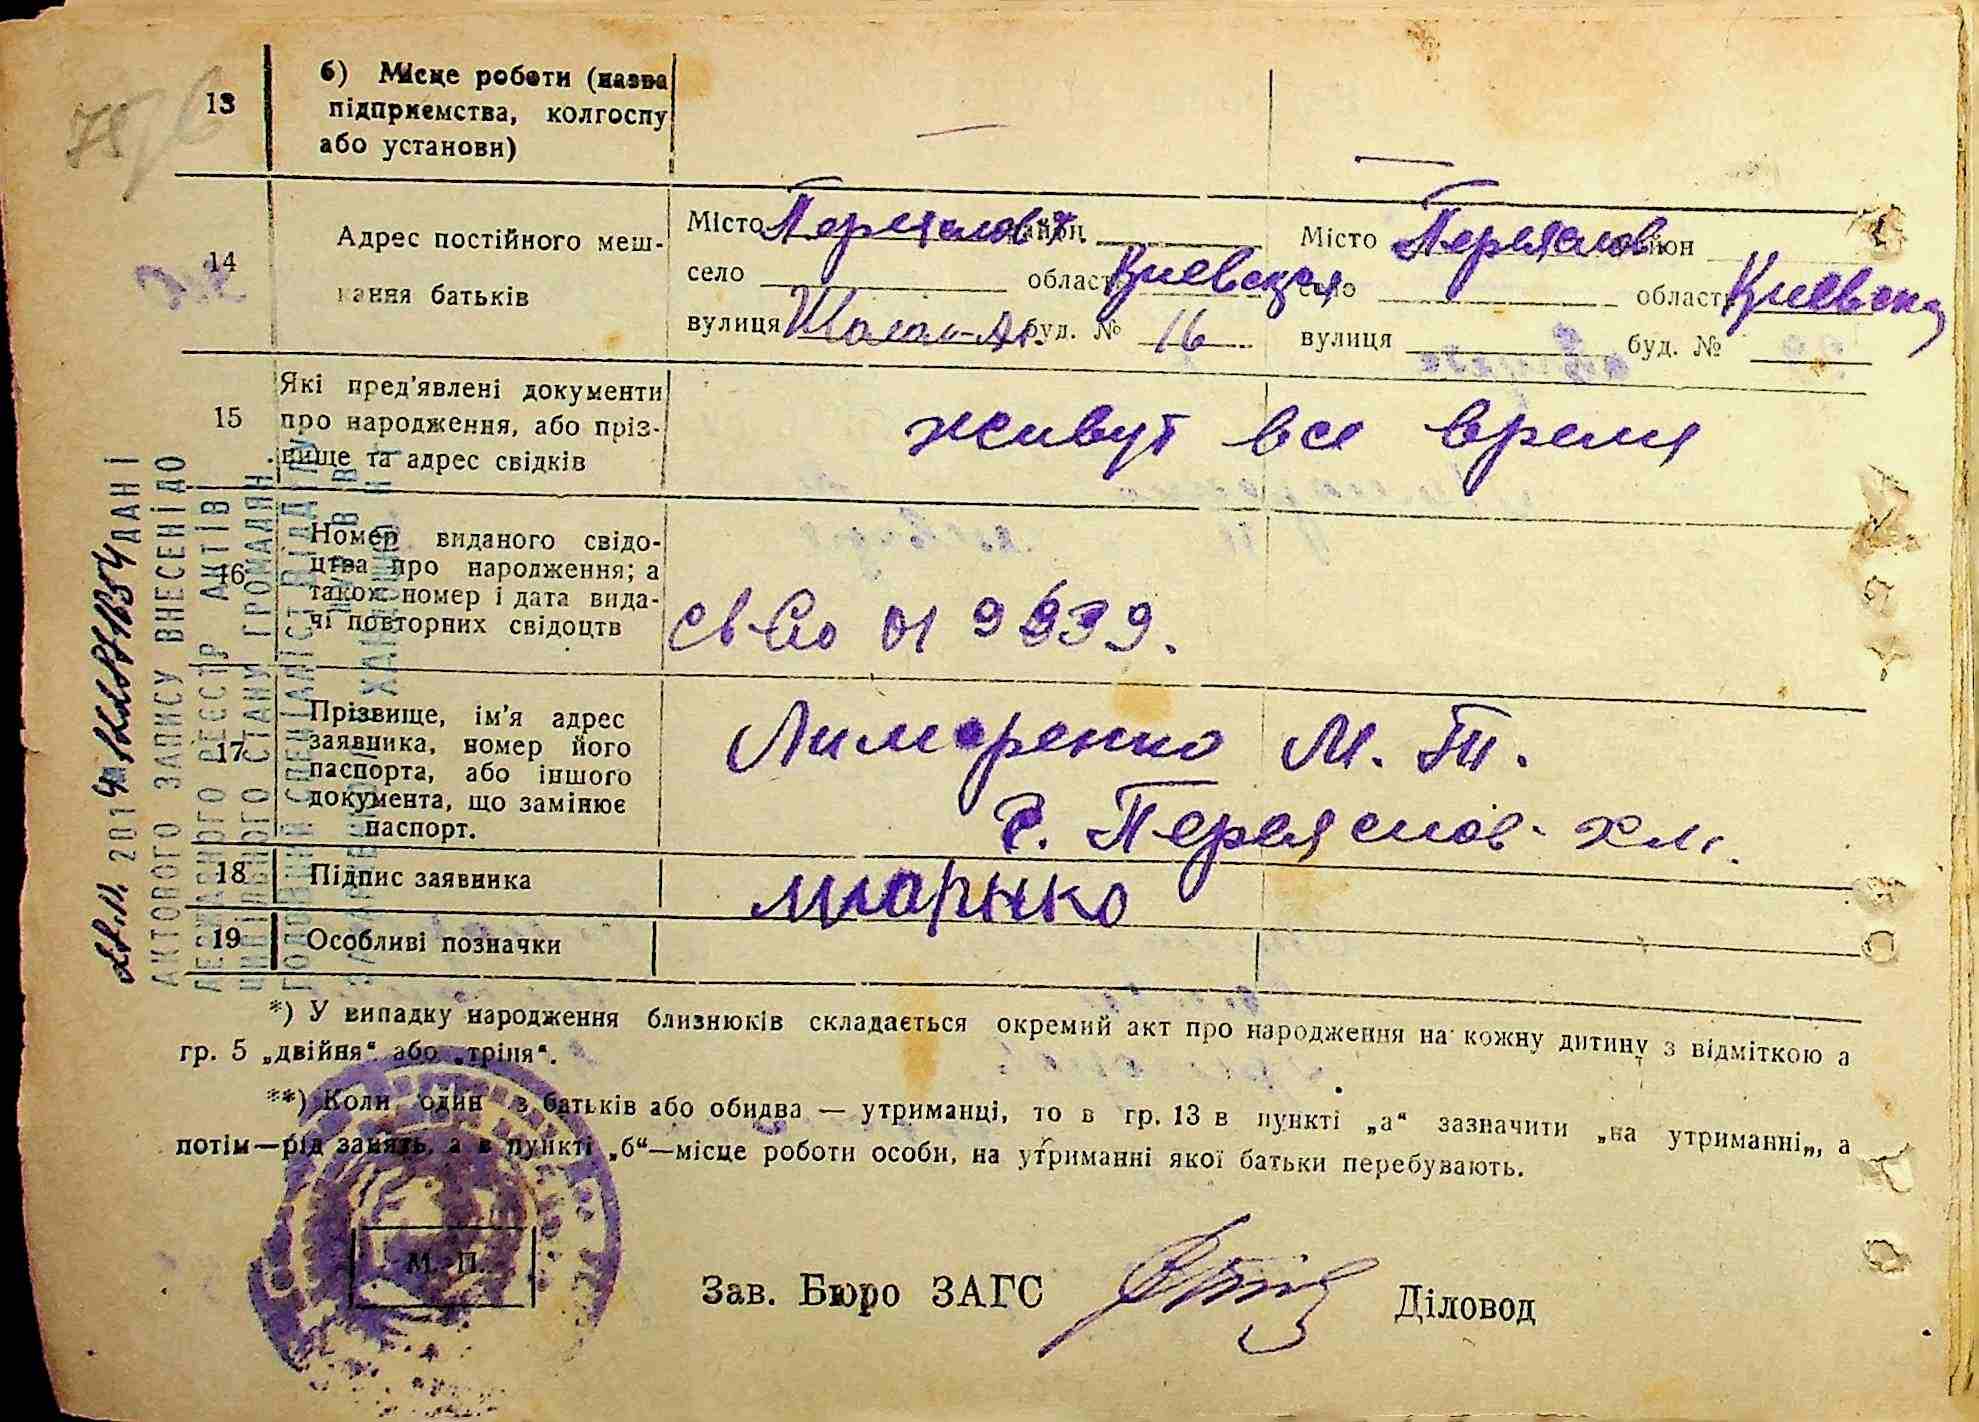 13
б) Місце роботи (назва
підприємства, колгоспу
або установи)
14
Адрес постійного меш-
кання батьків
Місто Переяслов х. район
село область Киевская
вулиця буд. № 16
Місто Переяслов район
село область Киевска
вулиця буд. №
15
Які пред'явлені документи
про народження, або пріз-
вище та адрес свідків
живут все время
16
Номер виданого свідо-
цтва про народження; а
також номер і дата вида-
чі повторних свідоцтв
св-во 019939.
17
Прізвище, ім'я адрес
заявника, номер його
паспорта, або іншого
документа, що замінює
паспорт.
Лимаренко М. Т.
г. Переяслов-хм.
18
Підпис заявника
19
Особливі позначки
*) У випадку народження близнюків складається окремий акт про народження на кожну дитину з відміткою а
гр. 5 „двійня“ або „тріня“.
**) Коли один з батьків або обидва — утриманці, то в гр. 13 в пункті „а“ зазначити „на утриманні„, а
потім—рід занять, а в пункті „б“—місце роботи особи, на утриманні якої батьки перебувають.
М. П.
Зав. Бюро ЗАГС
Діловод
201 ДАНІ
АКТОВОГО ЗАПИСУ ВНЕСЕНІ ДО
ДЕРЖАВНОГО РЕЄСТР АКТІВ
ЦИВІЛЬНОГО СТАНУ ГРОМАДЯН
ГОЛОВНИЙ СПЕЦІАЛІСТ ВІДДІЛУ